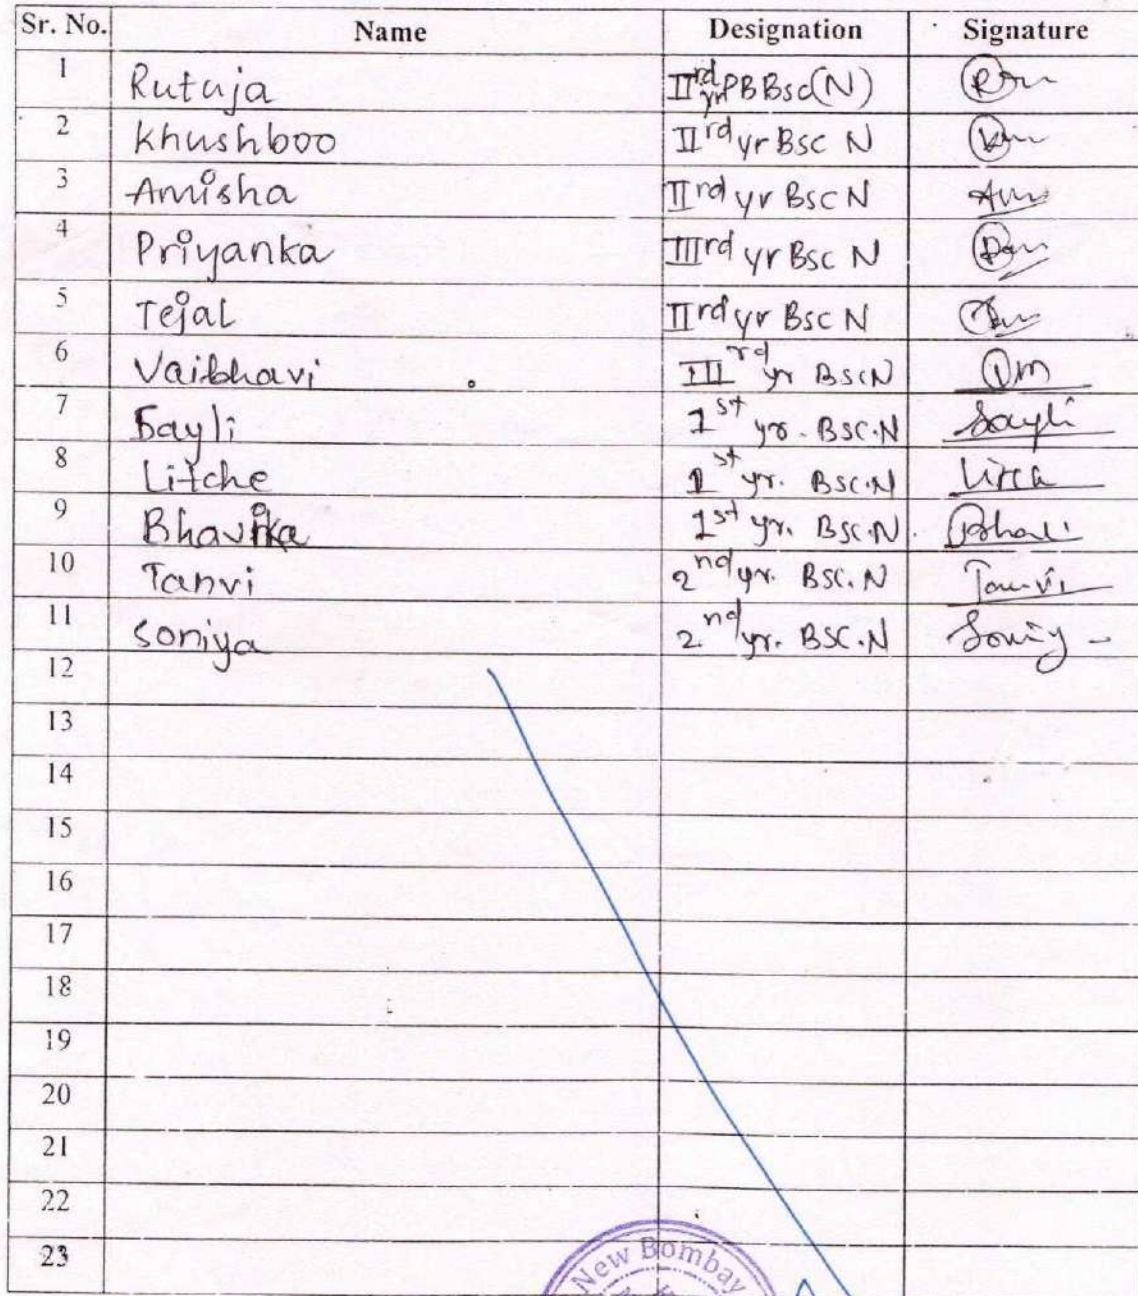 Sr. No. Name Designation Signature
1 Rutuja IIrd yr PBBsc(N)
2 Khushboo IIrd yr Bsc N
3 Amisha IIrd yr Bsc N
4 Priyanka IIIrd yr Bsc N
5 Tejal IIrd yr Bsc N
6 Vaibhavi IIIrd yr BscN
7 Sayli 1st yr. BSC.N Sayli
8 Litche 1st yr. BSC.N
9 Bhavika 1st yr. BSC.N.
10 Tanvi 2nd yr. BSC.N Tanvi
11 Soniya 2nd yr. BSC.N
12
13
14
15
16
17
18
19
20
21
22
23
New Bombay